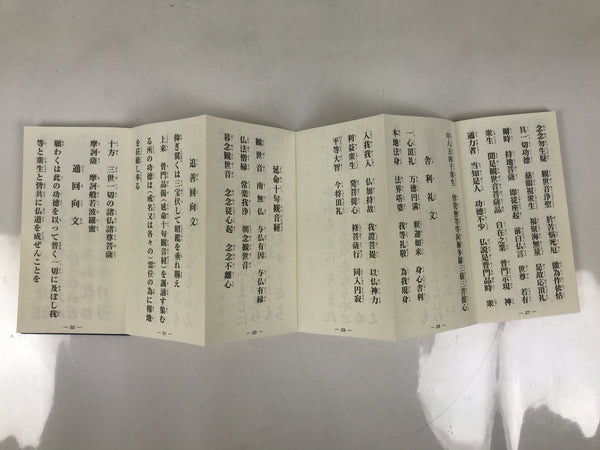 念念勿生疑 観世音浄聖 於苦悩死厄 能為作依怙
具一切功徳 慈眼視衆生 福聚海無量 是故応頂礼
爾時 持地菩薩 即従座起 前白仏言 世尊 若有
衆生 聞是観世音菩薩品 自在之業 普門示現 神
通力者 当知是人 功徳不少 仏説是普門品時 衆
― 27 ―
中八万四千衆生 皆発無等等阿耨多羅三藐三菩提心
舎利礼文
一心頂礼 万徳円満 釈迦如来 身心舎利
本地法身 法界塔婆 我等礼敬 為我現身
― 28 ―
入我我入 仏加持故 我證菩提 以仏神力
利益衆生 発菩提心 修菩薩行 同入円寂
平等大智 今将頂礼
― 29 ―
延命十句観音経
観世音 南無仏 与仏有因 与仏有縁
仏法僧縁 常楽我浄 朝念観世音
暮念観世音 念念従心起 念念不離心
― 30 ―
追善回向文
仰ぎ冀くは三宝伏して昭鑑を垂れ賜え
上来 普門品偈(延命十句観音経)を諷誦す集む
る所の功徳は(戒名又は各々の)霊位の為に報地
を荘厳し奉る
― 31 ―
十方 三世一切の諸仏諸尊菩薩
摩訶薩 摩訶般若波羅蜜
通回向文
願わくは此の功徳を以って普く一切に及ぼし我
等と衆生と皆共に仏道を成ぜんことを
― 32 ―